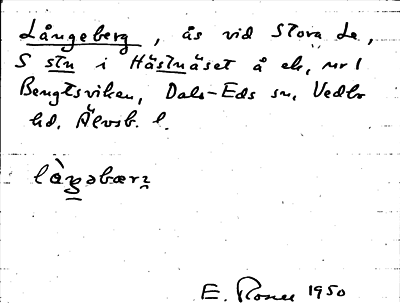 Långeberg, ås vid Stora Le,
S stn i Hästnäset å ek. nr 1
Bengtsviken, Dals-Eds sn, Vedbo
hd. Älvsb. l.
E. Rosell 1950